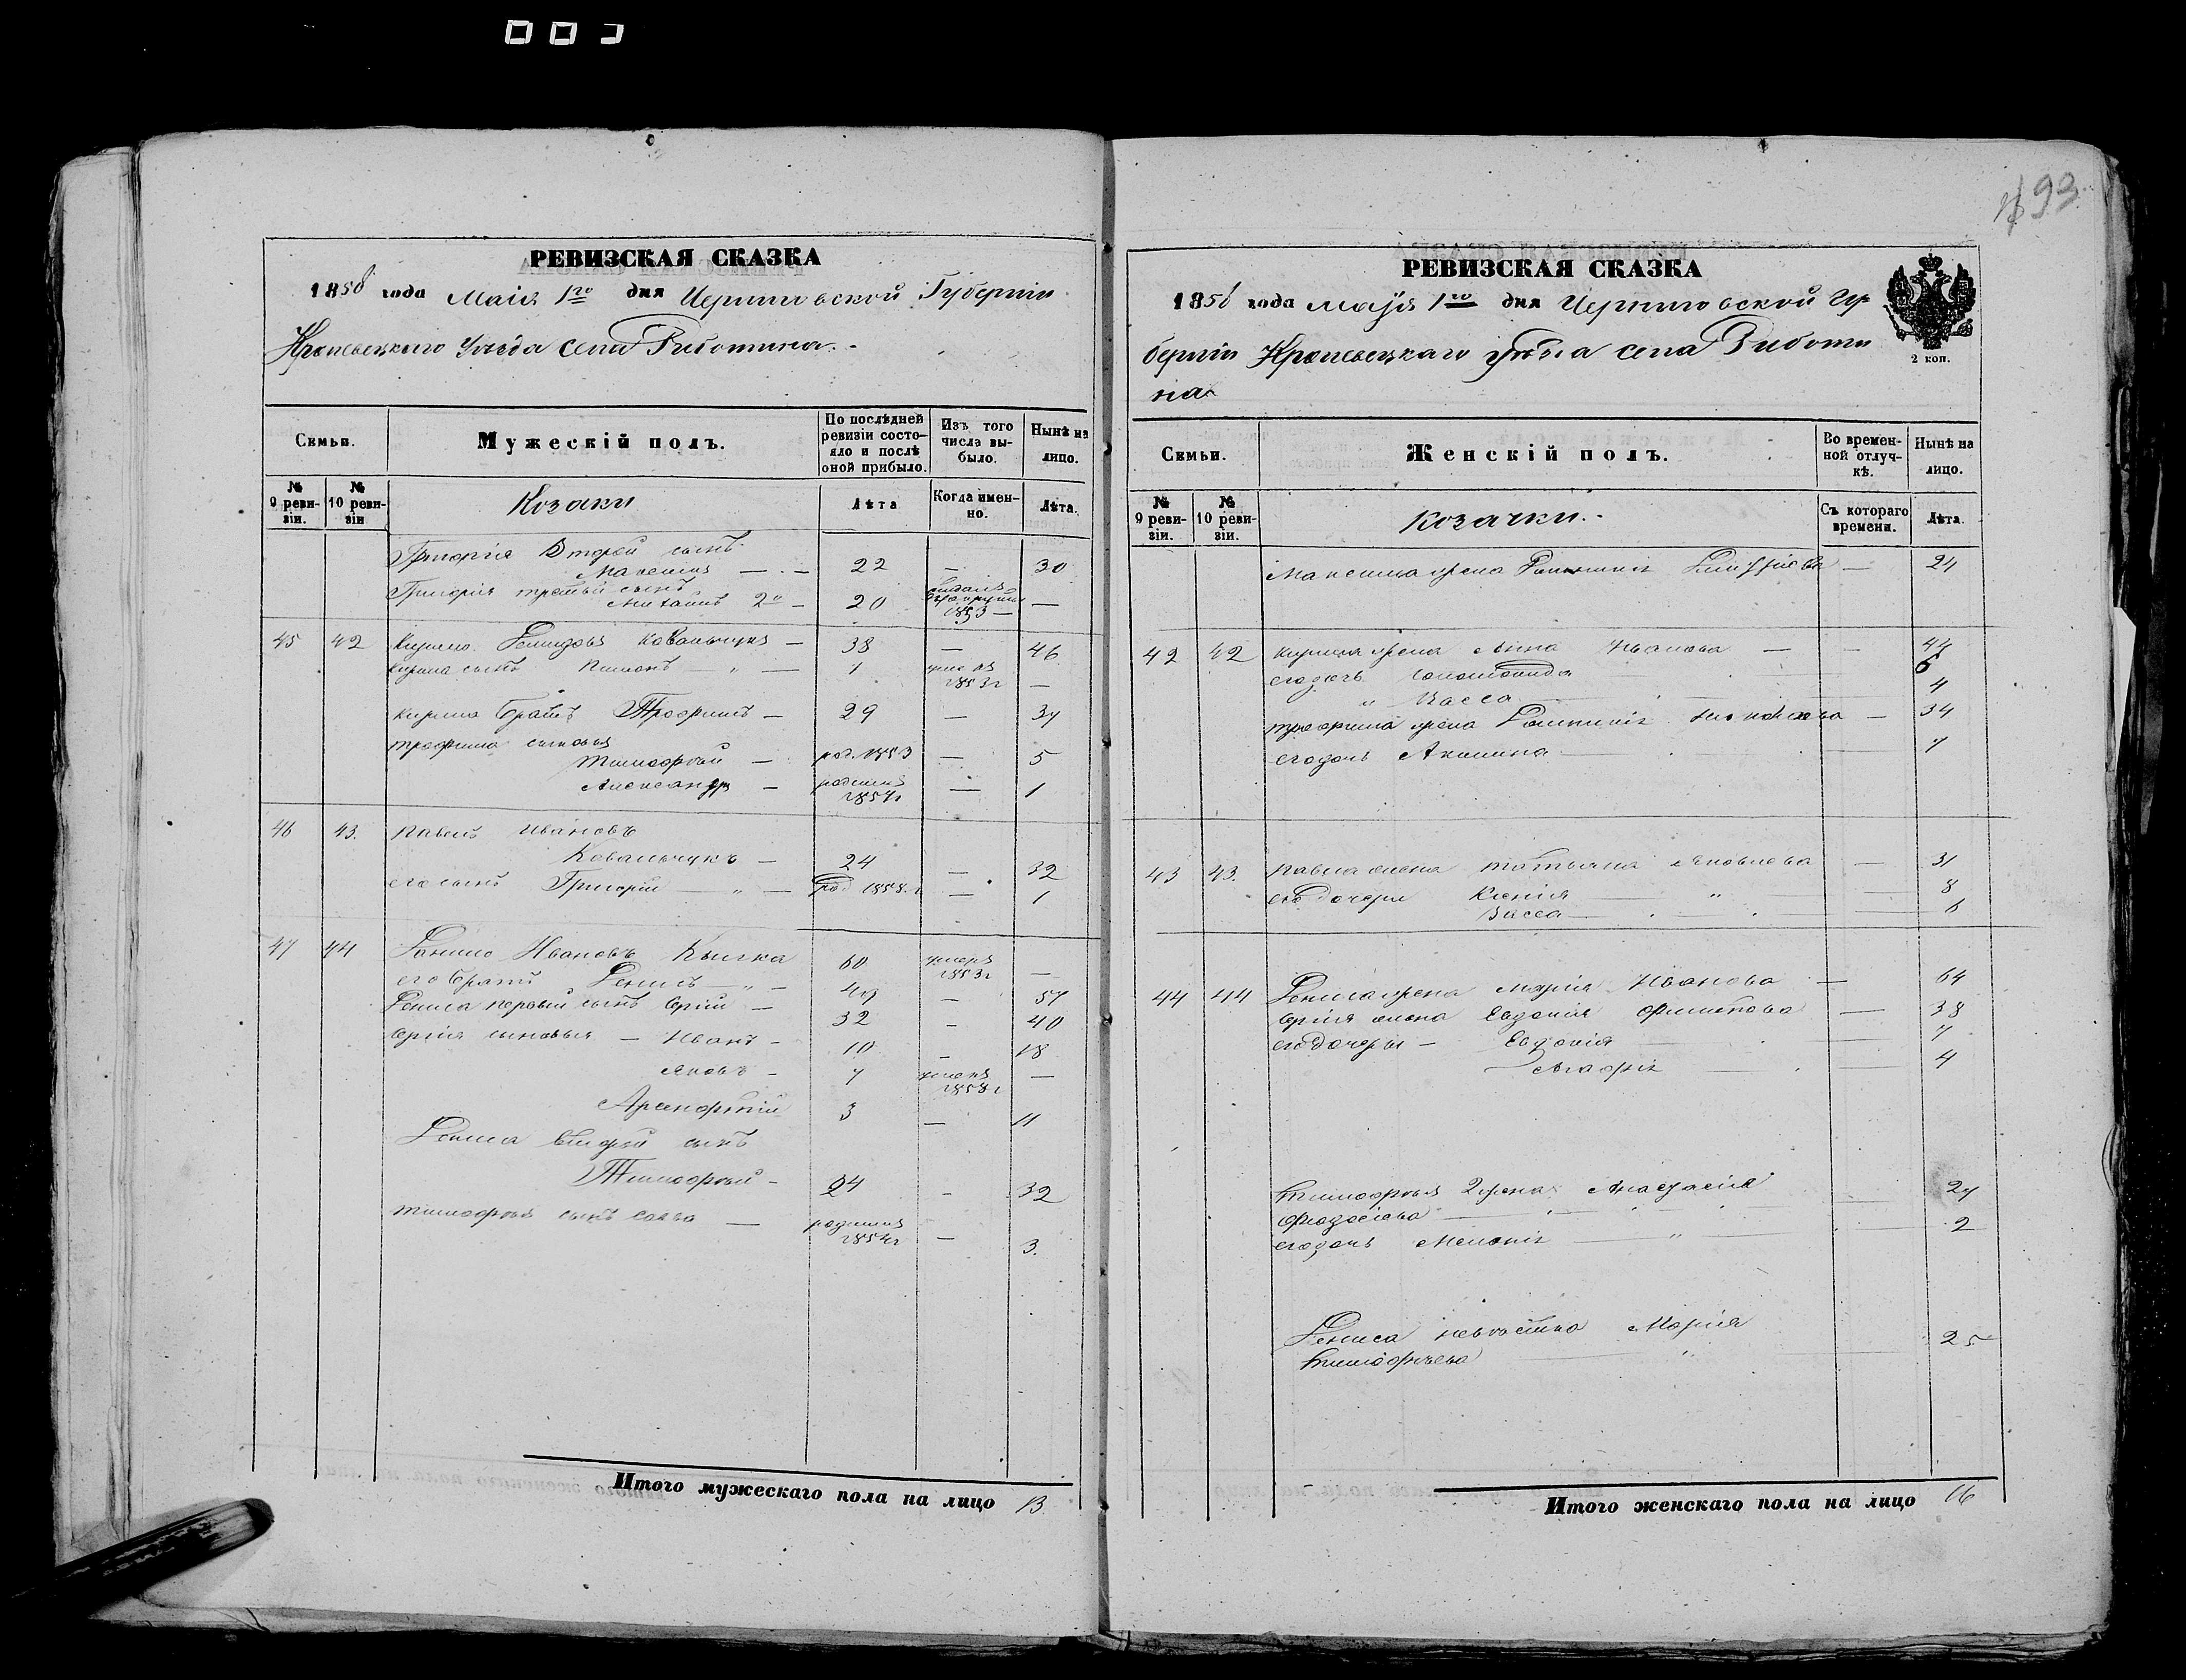 493
РЕВИЗСКАЯ СКАЗКА
1858 года Маія 1го дня Черниговской Губерніи
Кролевецкаго Уѣзда села
Семьи.
Мужескій полъ.
По послѣдней ревизіи состо-
яло и послѣ
оной прибыло.
Изъ того
числа вы-
было.
Нынѣ на
лицо.
№
9 реви-
зіи.
№
10 реви-
зіи
Козаки
Лѣта
Когда имен-
но.
Лѣта.
Григорія Второй сынъ
Максимъ — 22 — 30
Григорія третій сынъ
2й — 20 1853 —
45 42 Кирило Ковальчукъ — 38 — 46
Кирила сынъ — " — 1 умеръ
1853г —
Кирила братъ Трофимъ — 29 — 37
Трофима сыновья
Тимофѣй — род. 1853 — 5
Александръ — родился
1857г — 1
46 43. Павелъ Ивановъ
Ковальчукъ — 24 — 32
его сынъ Григорій — " — род 1858.г — 1
47 44 Данило Ивановъ 60 умеръ
1853г —
его братъ Денисъ — " — 49 — 57
Дениса первый сынъ Сергій — 32 — 40
Сергія сыновья — Иванъ — 10 — 18
Яковъ — 7 умеръ —
3 — 11
Дениса второй сынъ
Тимофей — 24 — 32
Тимофея сынъ Савва — родился
1854г — 3.
Итого мужескаго пола на лицо 13.
РЕВИЗСКАЯ СКАЗКА
1858 года Маія 1го дня Черниговской Гу
берніи Кролевецкаго уѣзда села
на
2 коп.
Семьи.
Женскій полъ.
Во времен-
ной отлуч-
кѣ.
Нынѣ на
лицо.
№
9 реви-
зіи.
№
10 реви-
зіи.
Козачки.
Съ котораго
времени.
Лѣта.
Максима жена — 24
42 42 Кирила жена Анна Иванова — — 44
его дочь 6
" Васса 4
Трофима жена — 34
его дочь Акилина 7
43 43. Павла жена Татьяна Яковлева — 31
его дочери Ксенія — " — 8
Васса — 6
44 44 Дениса жена Марія Иванова — 64
Сергія жена Евдокія Филипова — 38
его дочери — Евдокія 7
Агафія 4
Тимофея 2 жена Анастасія 27
Феодосіева
его дочь Меланія — " — 2
Дениса невѣстка Марія 25
Тимофѣева — "
Итого женскаго пола на лицо 16